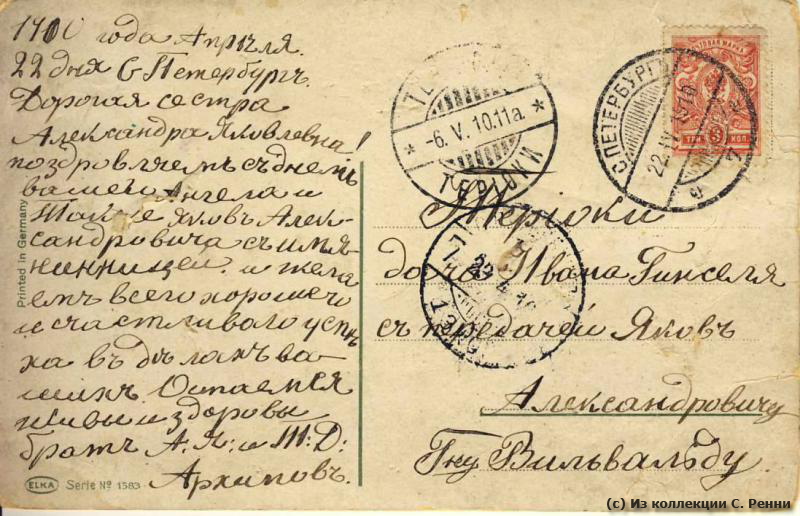 1910 года Апрѣля.
22 дня С Петербургъ
Дорогая сестра
Александра Яковлевна!
поздровляемъ съ днемъ
вашего Ангела и
Также Яковъ Алек-
сандровича съ имя-
нинницей. и жела
емъ всего хорошего
и счастливаго успѣ
ха въ дѣлахъ ва-
шихъ Остаемся
живы и здоровы
братъ А.Я: и М:Д:
Архиповъ.
Printed in Germany
ELKA Serie № 1583
ТЕРІОКИ
-6.V.10.11a.
С.ПЕТЕРБУРГЪ
22.IV.1910
7
ПОЧТОВАЯ МАРКА
3
ТРИ КОП.
Теріоки
дача Ивана Гинселя
съ передачей Яковъ
Александровичу
Гну Вильвальду.
(с) Из коллекции С. Ренни